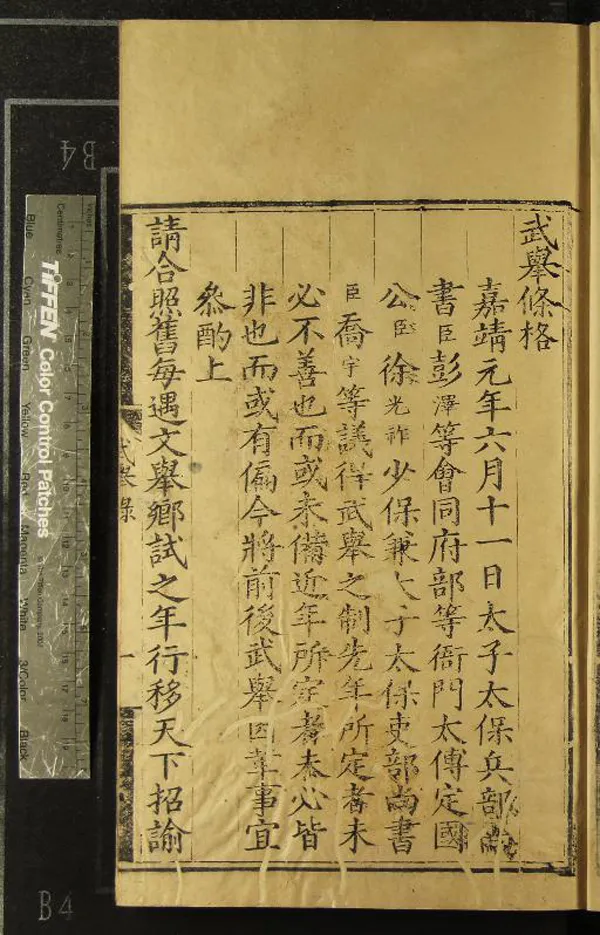 武舉條格
嘉靖元年六月十一日太子太保兵部尚
書臣彭澤等會同府部等衙門太傅定國
公臣徐光祚少保兼太子太保吏部尚書
臣喬宇等議得武舉之制先年所定者未
必不善也而或未備近年所定者未必皆
非也而或有偏今將前後武舉因革事宜
叅酌上
請合照舊每遇文舉鄉試之年行移天下招諭
武舉錄
一
B4
B4
TIFFEN Color Control Patches
Centimetres
Inches
Blue
Cyan
Green
Yellow
Red
Magenta
White
3/Color
Black